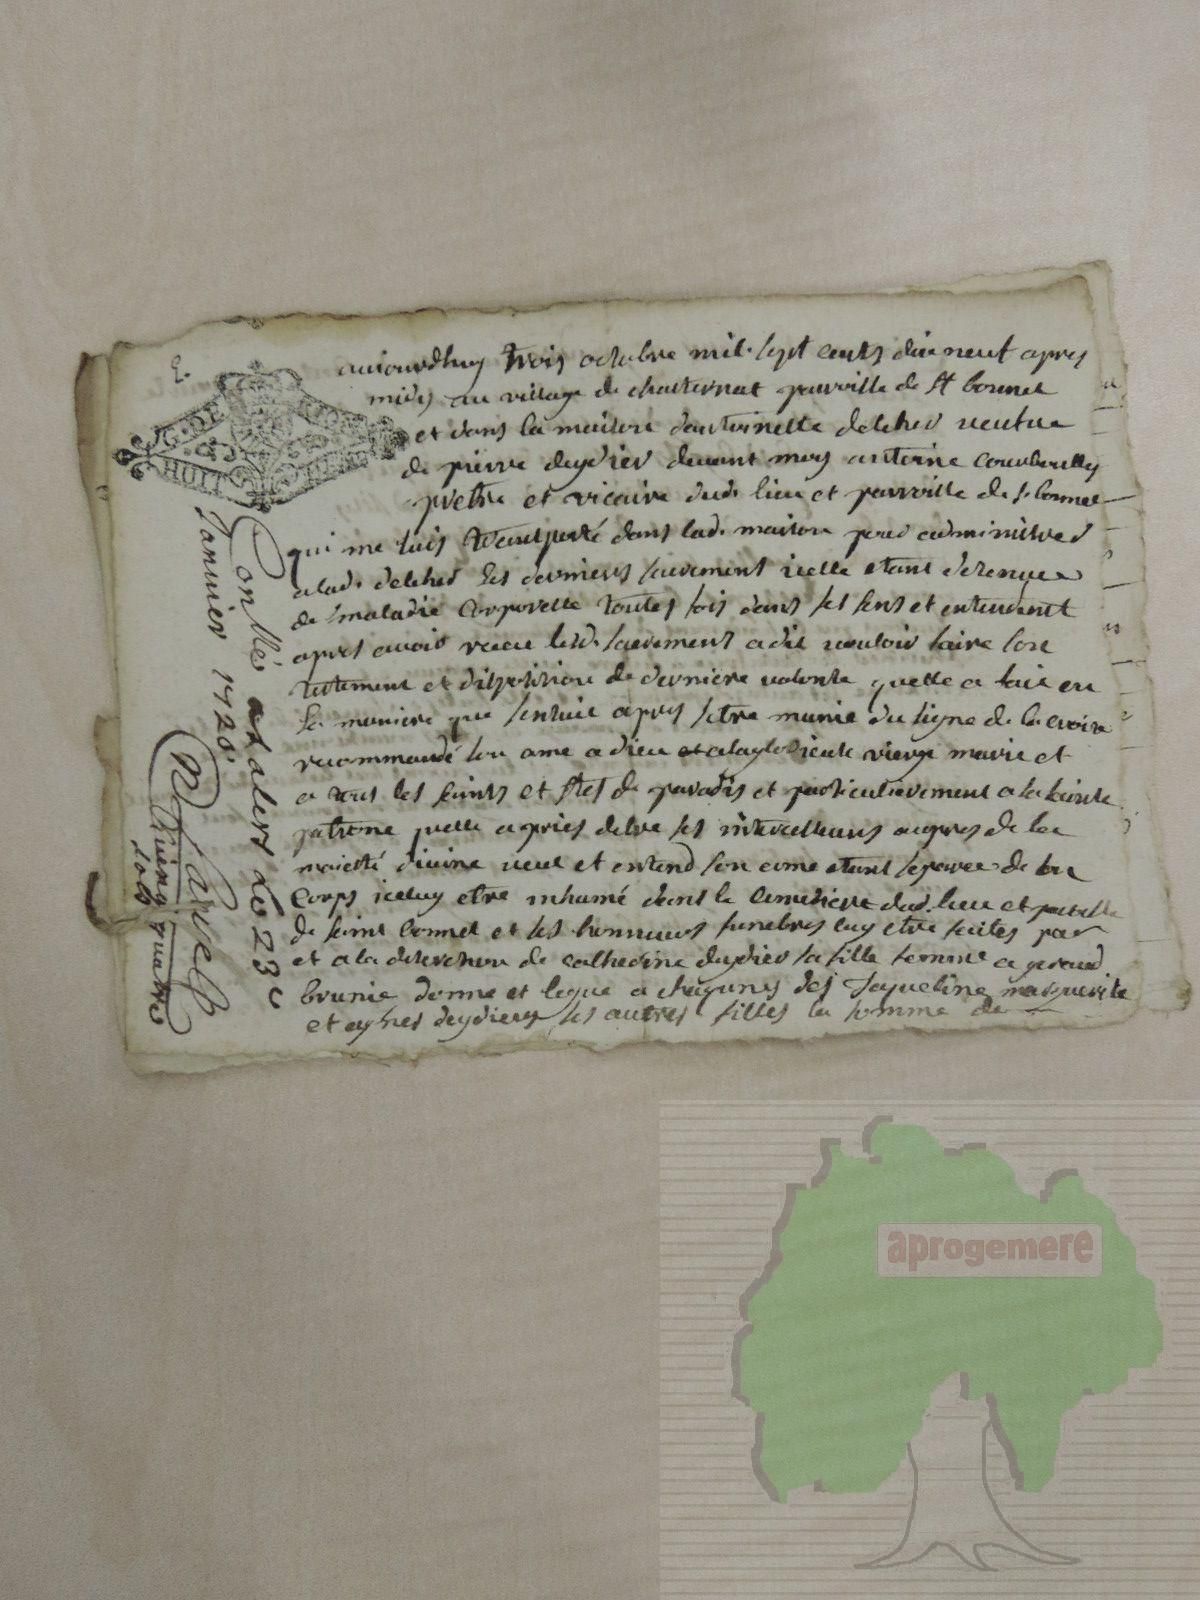 aujourdhuy trois octobre mil sept cents dix neuf apres
midy au village de parroisse de St bonnet
et dans la maison dantoinette delcher veufve
de pierre deydier devant moy antoine courboulles
prebtre et vicaire dud. lieu et parroisse de s. bonnet
qui me suis transporté dans lad. maison pour administrer
a lad. delcher les derniers sacrement icelle etant detenue
de maladie corporelle toutes fois dans ses sens et entendement
apres avoir receu lesd. sacrement a dit vouloir faire son
testament et disposition de derniere volonte quelle a fait en
la maniere que sensuit apres setre munie du signe de la croix
recommandé son ame a dieu et a la glorieuse vierge marie et
a tous les saints et stes de paradis et particulierement a la sainte
patrone quelle a pries detre ses intercesseurs aupres de la
majesté divine veut et entend son ame etant separee de son
corps iceluy etre inhumé dans le cimetiere dud. lieu et
de saint bonnet et ses honneurs funebres luy etre faites par
et a la discretion de catherine deydier sa fille femme a geraud
brunie donne et legue a chacunes des jaqueline marguerite
et agnes deydiers ses autres filles la somme de
Conllé a Salers le 23e
Janvier 1720
quatre
aprogemere